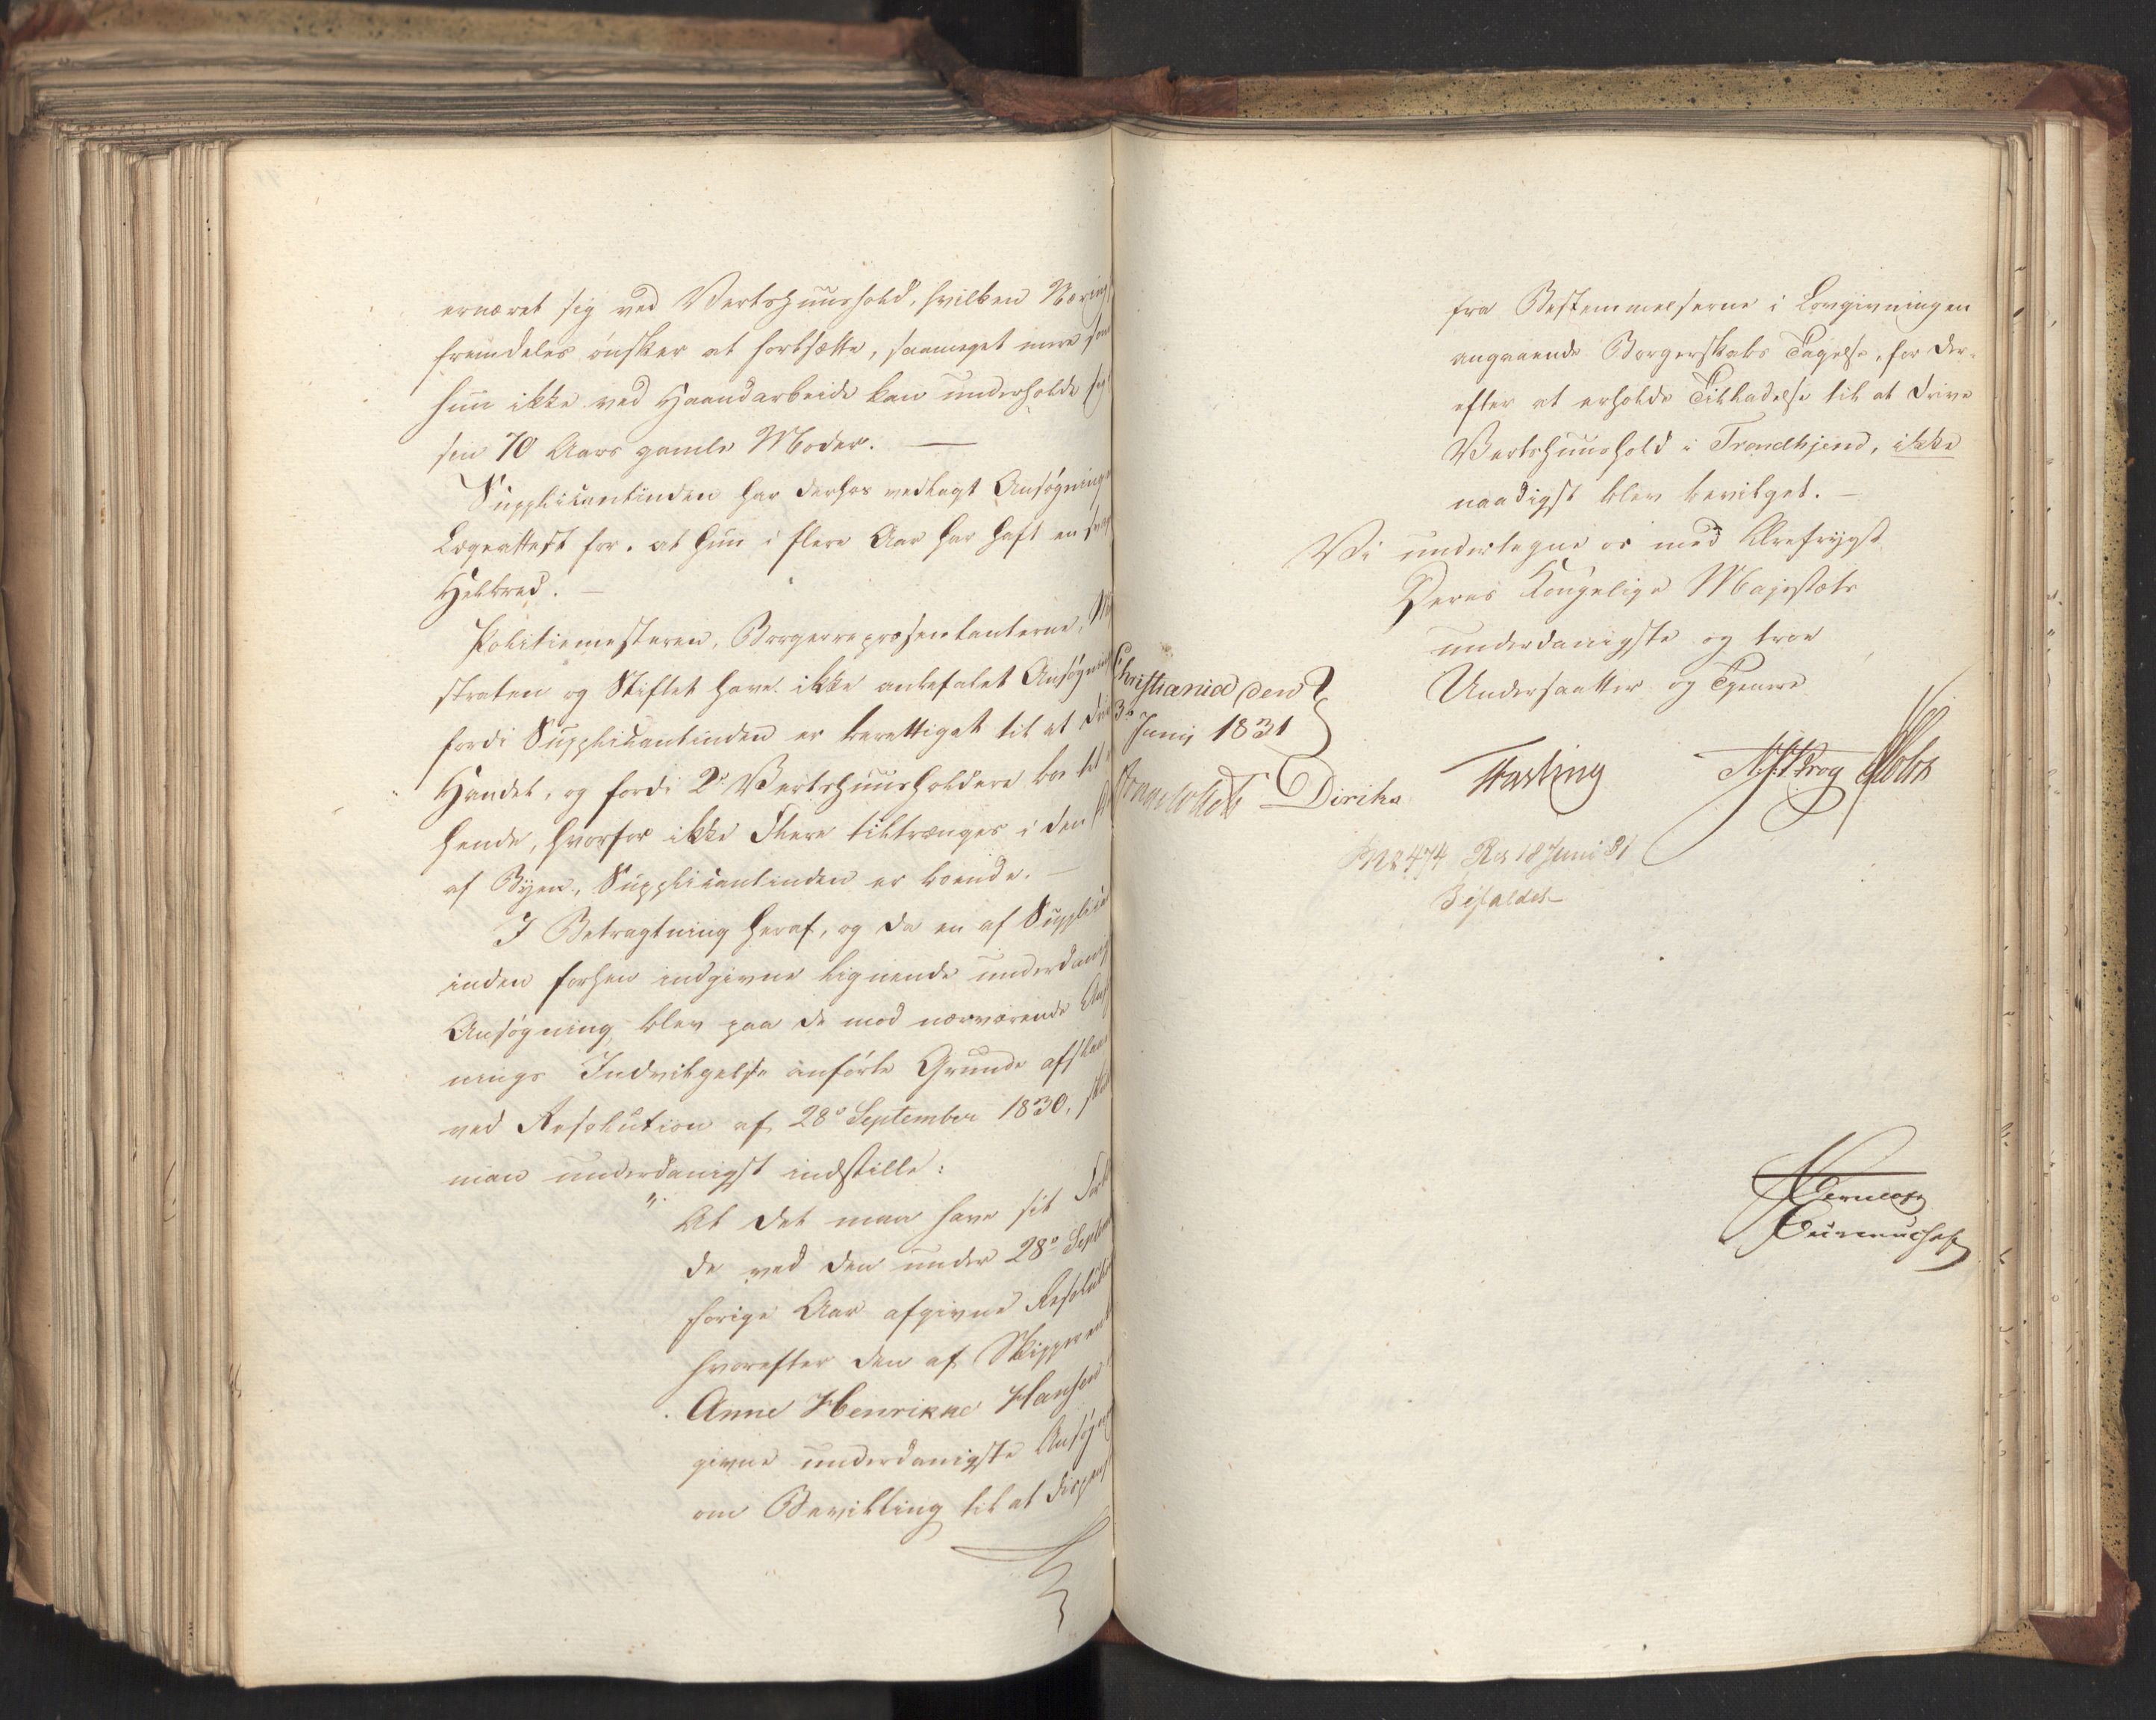 ernæret sig ved Vertshuushold, hvilken Næring
fremdeles ønsker at fortsætte, saameget mere som
hun ikke ved Haandarbeide kan underholde sig
sin 70 Aars gamle Moder. —
Supplicantinden har derhos vedlagt Ansøgninge
Lægeattest for, at hun i flere Aar har haft en svag
Helbred. —
Politiemesteren, Borgerrepræsentanterne, Magi
straten og Stiftet have ikke anbefalet Ansøgning
fordi Supplicantinden er berettiget til at drive
Handel, og fordi 2de Vertshuusholdere boe tæt
hende, hvorfor ikke Flere tiltrænges i den
af Byen, Supplicantinden er boende. —
I Betragtning heraf, og da en af Supplicant
inden forhen indgivne lignende underdanig
Ansøgning blev paa de mod nærværende Ansøg
nings Indvilgelse anførte Grunde afslaaet
ved Resolution af 28de September 1830, skal
man underdanigst indstille:
"At det maa have sit Forbliven
de ved den under 28de Septbr
forige Aar afgivne Resolution
hvorefter den af Skipperenke
Anne Henrikke Hansen
givne underdanigste Ansøgning
om Bevilling til at dispens
fra Bestemmelserne i Lovgivningen
angaaende Borgerskabs Tagelse, for der-
efter at erholde Tilladelse til at drive
Vertshuushold i Trondhjem, ikke
naadigst blev bevilget. —
Vi undertegne os med Ærefrygt
Deres Kongelige Majestæts
underdanigste og troe
Undersaatter og Tjenere
Christiania den
3de Junii 1831
Diriks Fasting Krog Holst
No 474 Res 18 Juni 31
Bifaldet